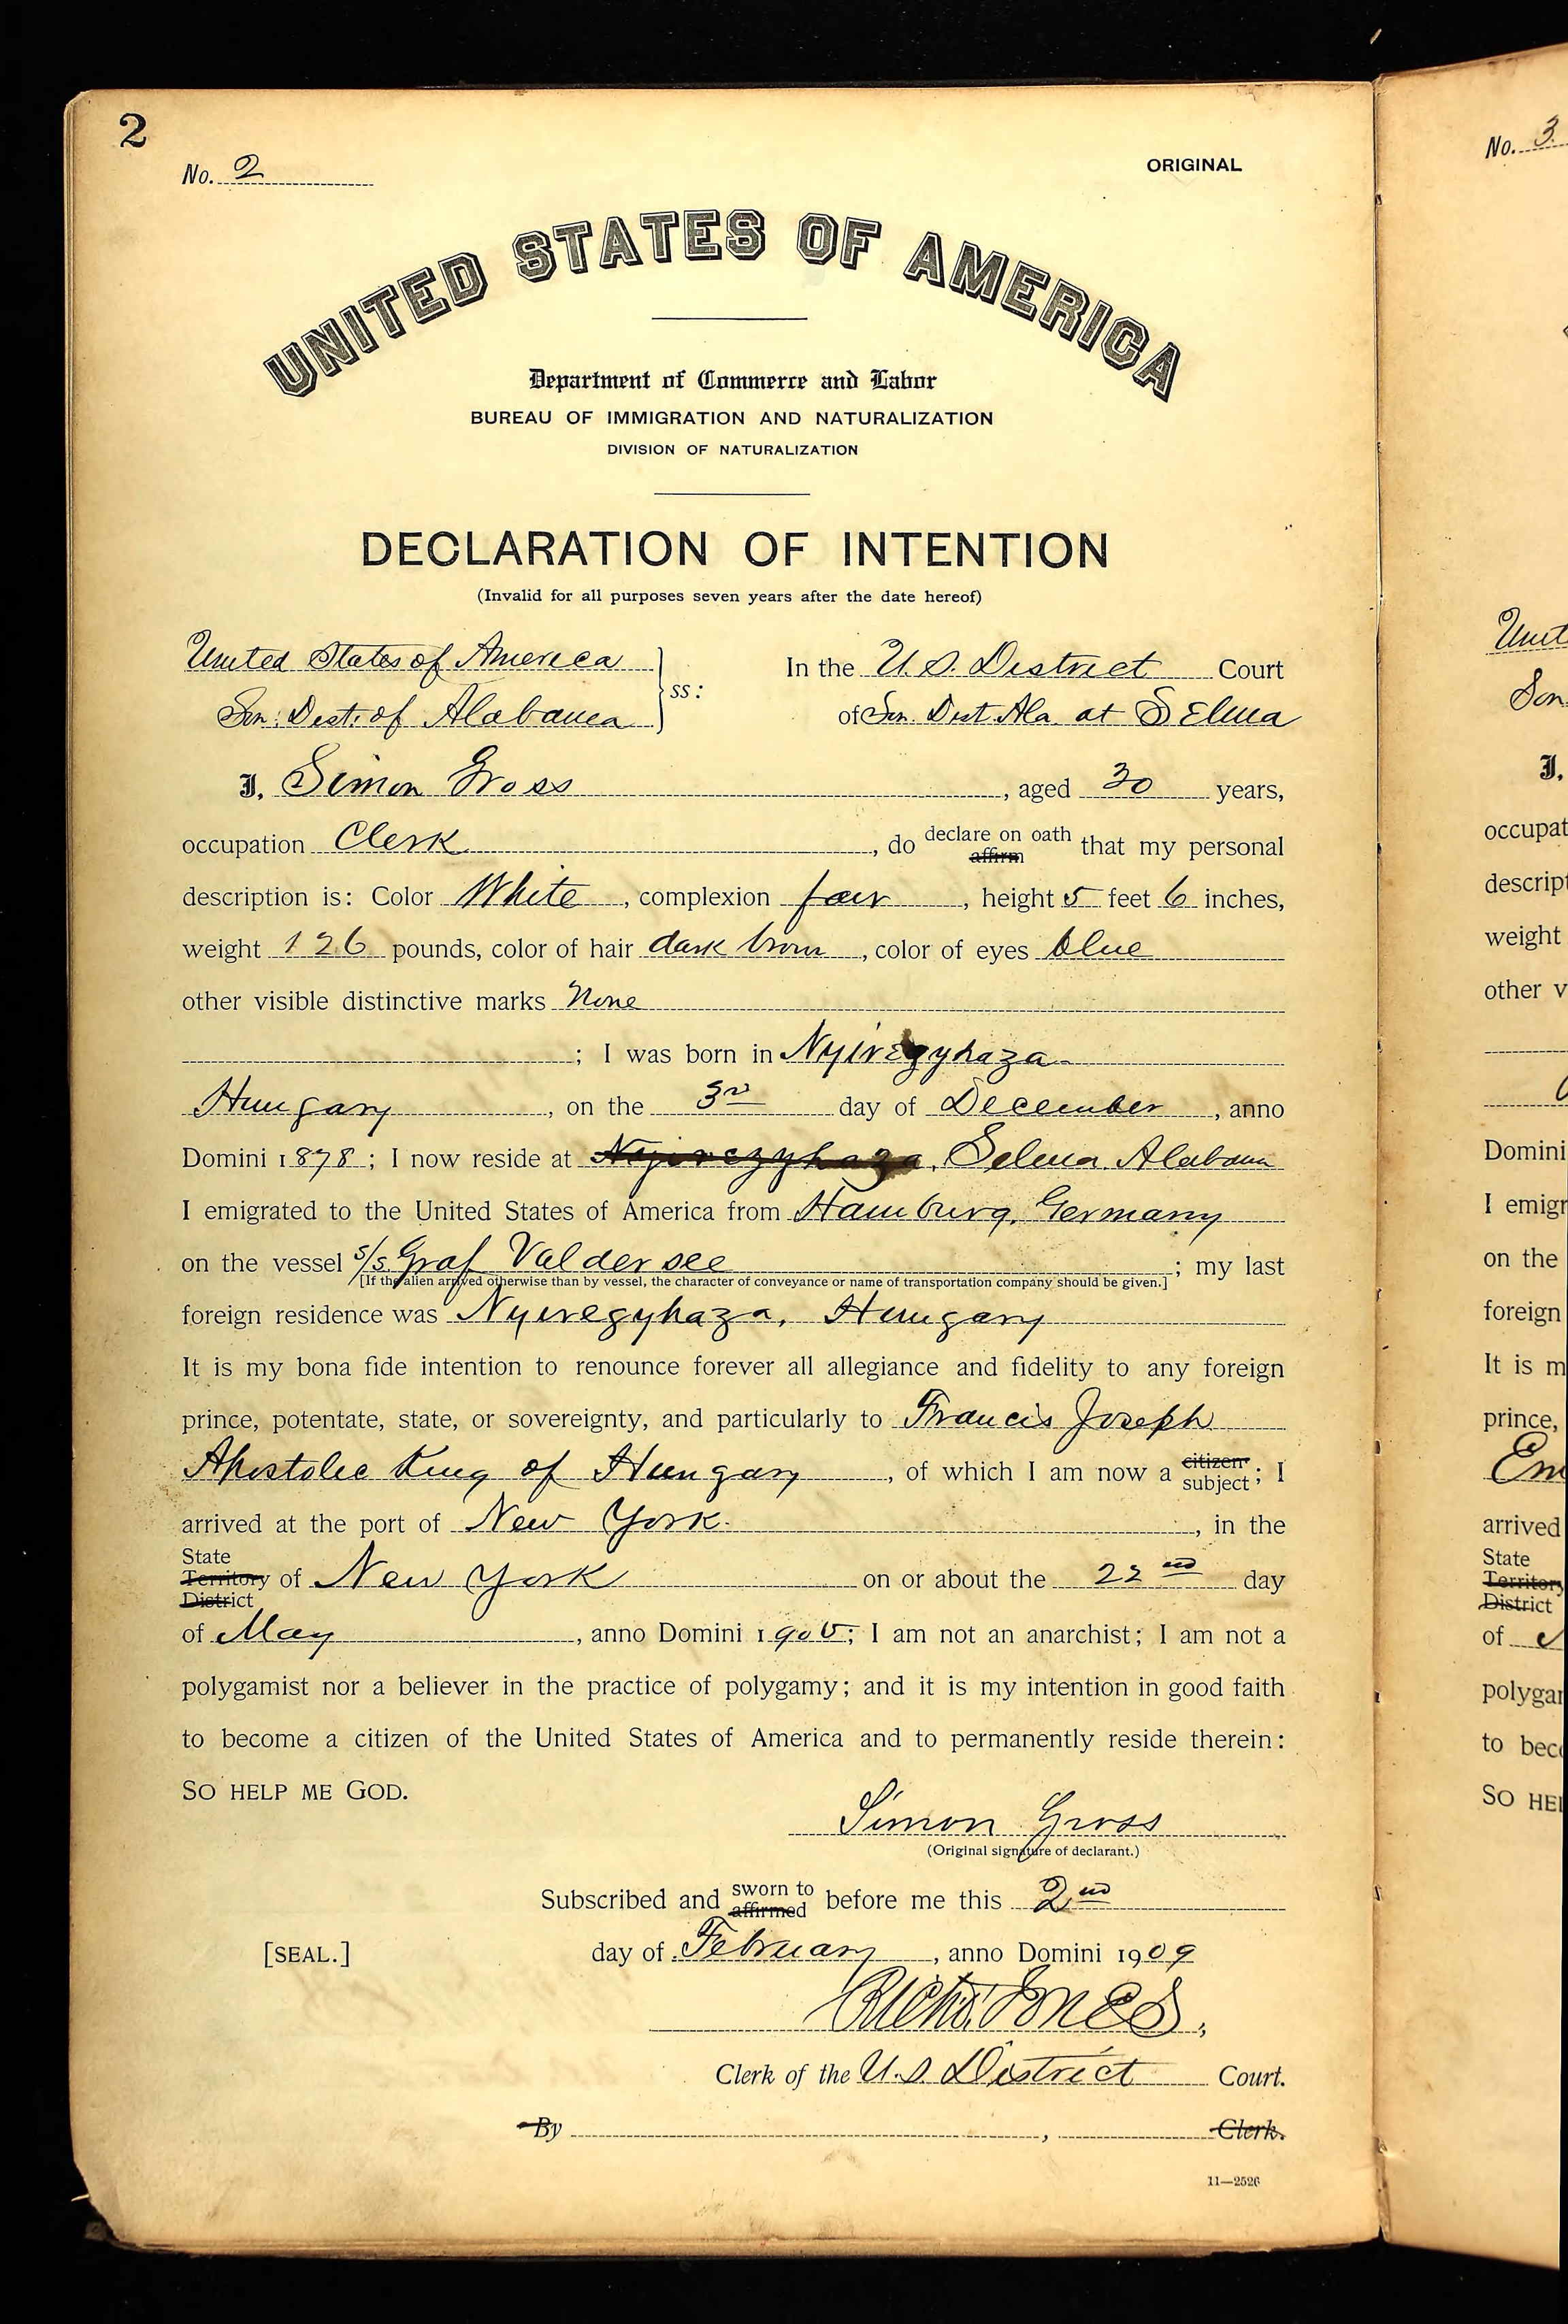 2
No. 2
ORIGINAL
UNITED STATES OF AMERICA
Department of Commerce and Labor
BUREAU OF IMMIGRATION AND NATURALIZATION
DIVISION OF NATURALIZATION
DECLARATION OF INTENTION
(Invalid for all purposes seven years after the date hereof)
United States of America
Son: Dist: of Alabama
ss:
In the U.S. District Court
of Son. Dist. Ala. at Selma
I, Simon Gross, aged 30 years,
occupation Clerk, do declare on oath affirm that my personal
description is: Color White, complexion fair, height 5 feet 6 inches,
weight 126 pounds, color of hair dark brown, color of eyes blue
other visible distinctive marks None
; I was born in Nyiregyhaza
Hungary, on the 3rd day of December, anno
Domini 1878; I now reside at Selma, Alabama
I emigrated to the United States of America from Hamburg, Germany
on the vessel s/s. Graf Valdersee; my last
[If the alien arrived otherwise than by vessel, the character of conveyance or name of transportation company should be given.]
foreign residence was Nyiregyhaza, Hungary
It is my bona fide intention to renounce forever all allegiance and fidelity to any foreign
prince, potentate, state, or sovereignty, and particularly to Francis Joseph
Apostolic King of Hungary, of which I am now a citizen subject; I
arrived at the port of New York, in the
State Territory District of New York on or about the 22nd day
of May, anno Domini 190; I am not an anarchist; I am not a
polygamist nor a believer in the practice of polygamy; and it is my intention in good faith
to become a citizen of the United States of America and to permanently reside therein:
SO HELP ME GOD.
Simon Gross
(Original signature of declarant.)
Subscribed and sworn to affirmed before me this 2nd
[SEAL.]
day of February, anno Domini 1909
Richd. Jones,
Clerk of the U.S. District Court.
By , Clerk.
11—2526
No. 3
Unit
Son:
I,
occupat
descript
weight
other v
Domini
I emigr
on the
foreign
It is m
prince,
Em
arrived
State
Territory
District
of
polygam
to beco
SO HEL